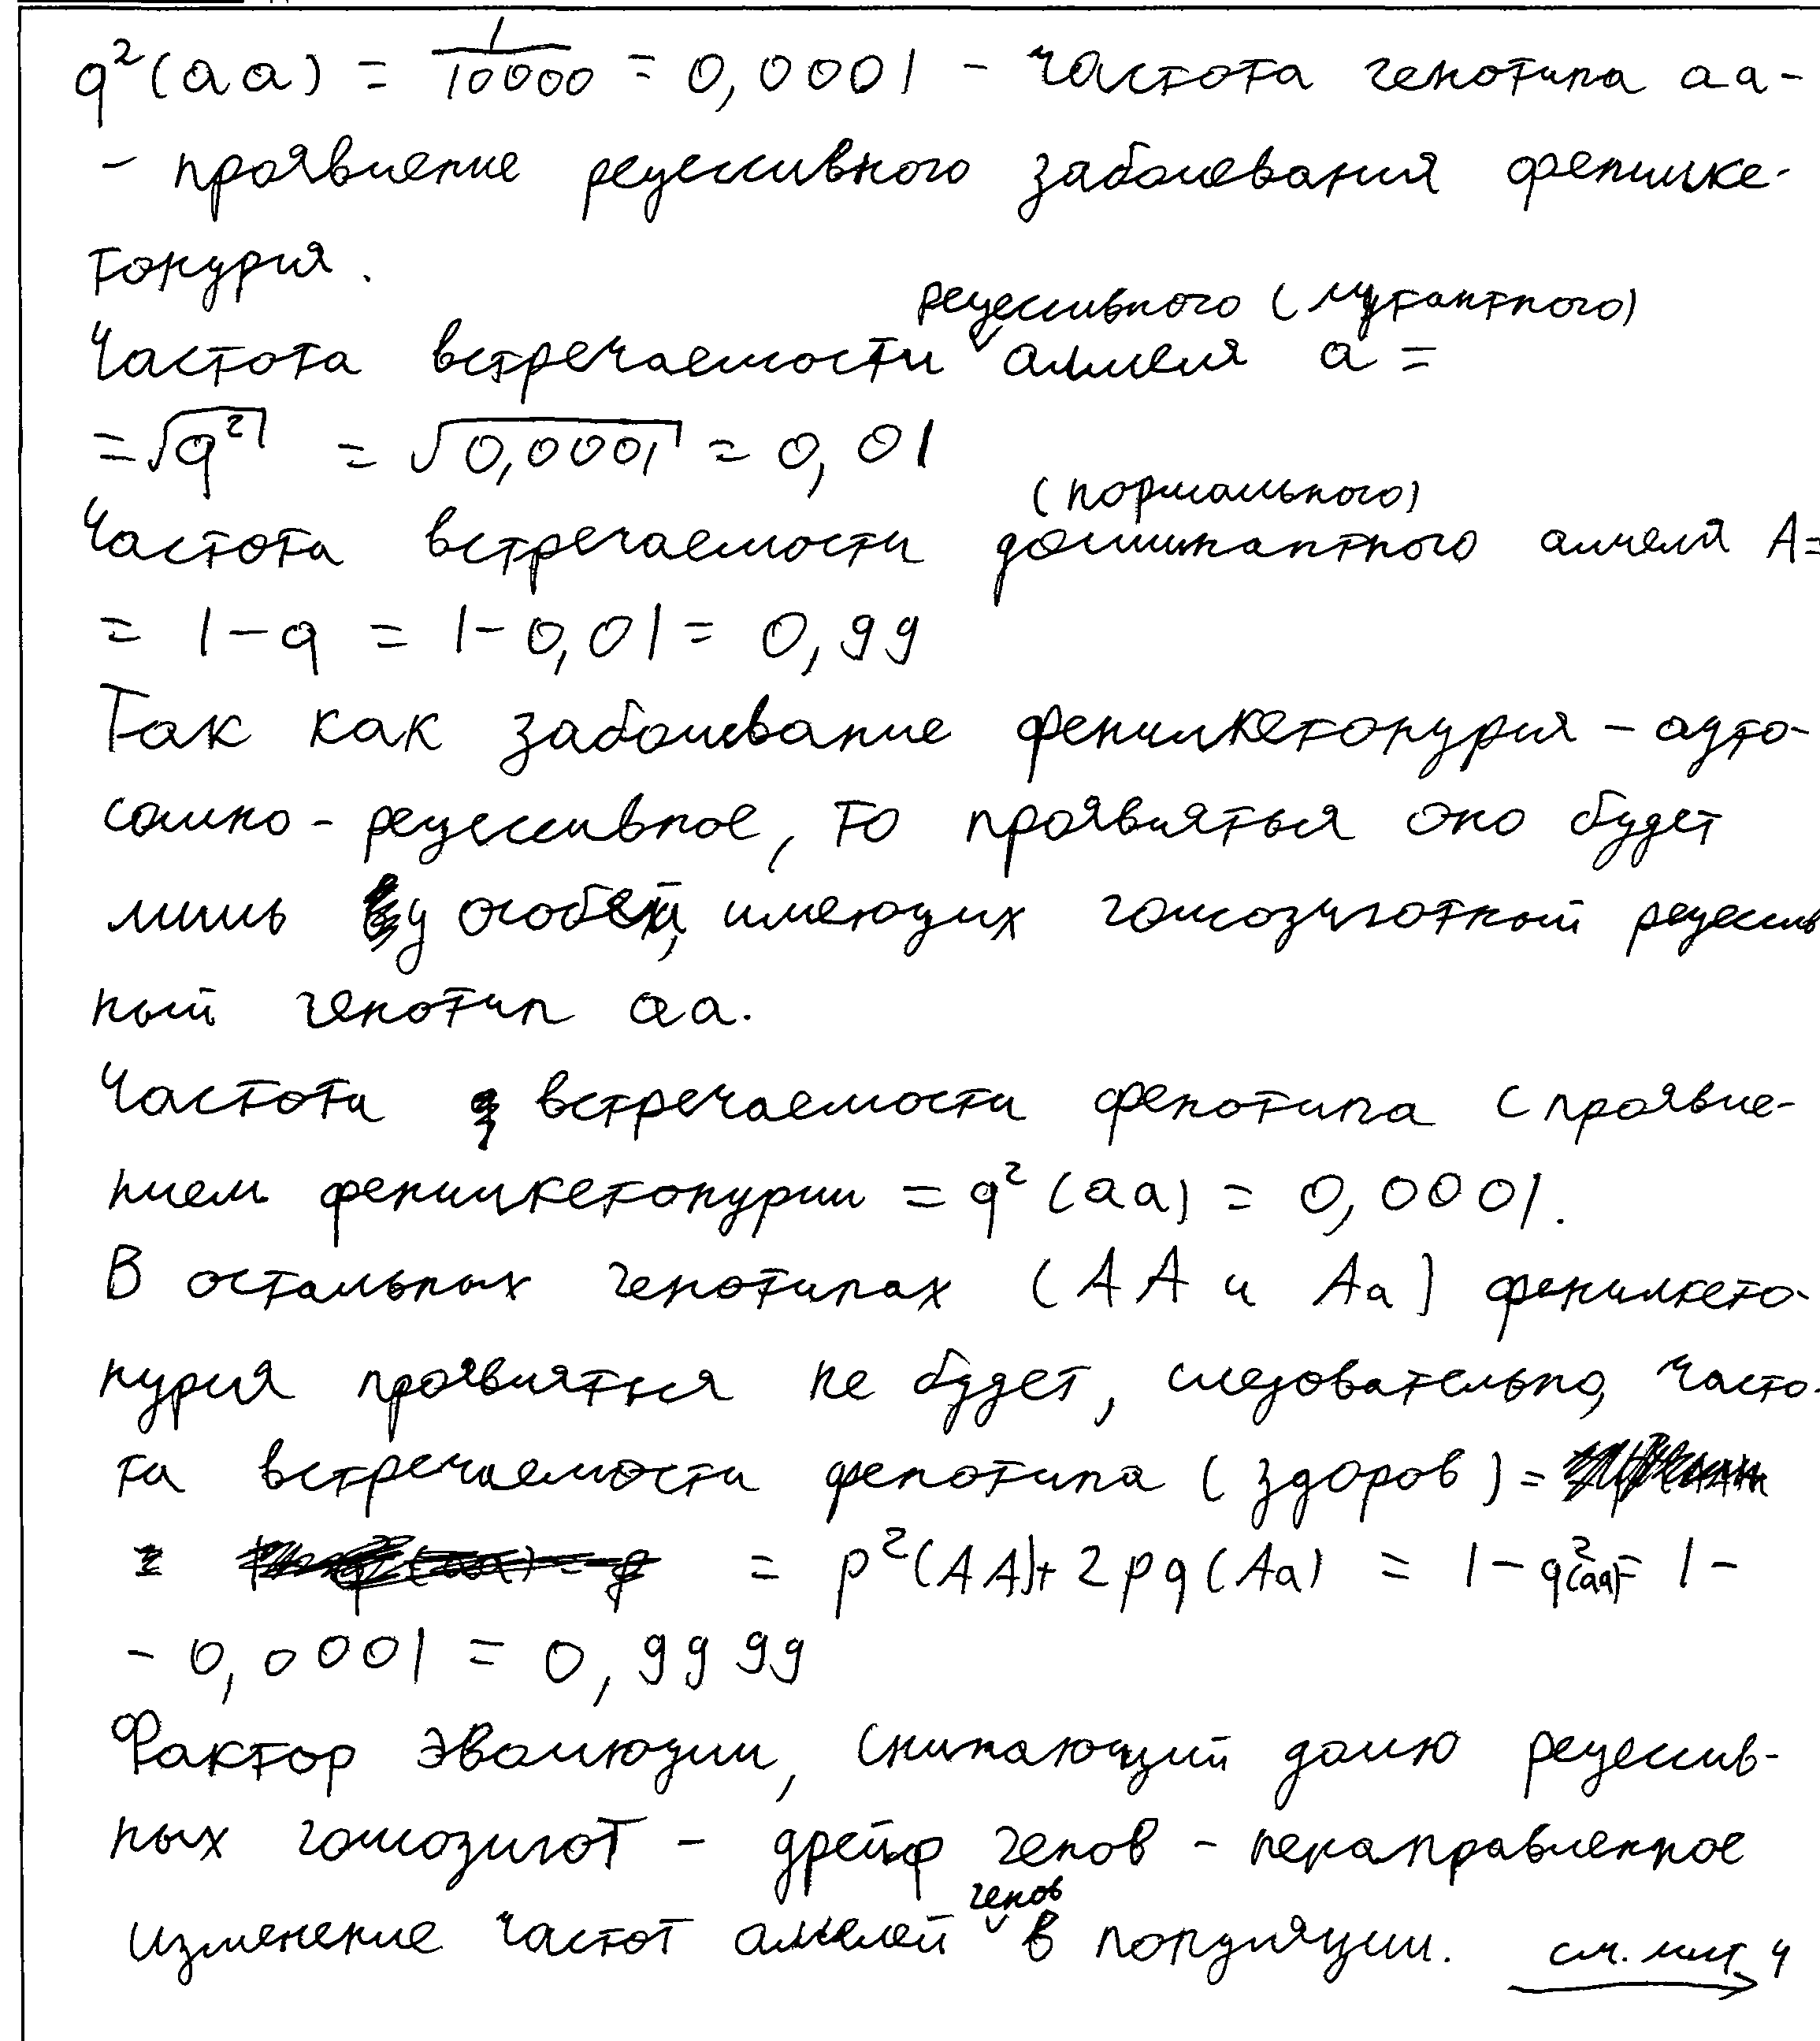 q²(aa) = 1/10000 = 0,0001 - частота генотипа aa-
- проявление рецессивного заболевания фенилке-
тонурия.
рецессивного (мутантного)
Частота встречаемости ˅ аллеля a =
= √q² = √0,0001 = 0,01
(нормального)
Частота встречаемости доминантного аллеля A=
= 1-q = 1-0,01 = 0,99
Так как заболевание фенилкетонурия - ауто-
сомно-рецессивное, то проявляться оно будет
лишь у особей, имеющих гомозиготный рецессив
ный генотип aa.
Частота встречаемости фенотипа с проявле-
нием фенилкетонурии = q²(aa) = 0,0001.
В остальных генотипах (AA и Aa) фенилкето-
нурия проявляться не будет, следовательно, часто-
та встречаемости фенотипа (здоров) =
= p²(AA)+2pq(Aa) = 1-q²(aa)= 1-
- 0,0001 = 0,9999
Фактор эволюции, снижающий долю рецессив-
ных гомозигот - дрейф генов - ненаправленное
генов
изменение частот аллелей ˅ в популяции. см. лист 4